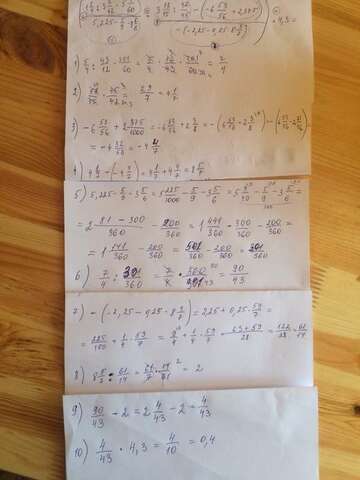 1) 5/4 · 43/12 · 301/60 = 7/4
2) 78/75 · 75/42 = 29/7 = 4 1/7
3) -6 53/56 + 2 375/1000 = -6 53/56 + 2 3/8 = -(6 53/56 - 2 3/8) = -(6 53/56 - 2 21/56) =
= -4 32/56 = -4 4/7
4) 4 1/7 - (-4 4/7) = 4 1/7 + 4 4/7 = 8 5/7
5) 5,225 - 5/9 - 3 5/6 = 5 225/1000 - 5/9 - 3 5/6 = 5 9/40 - 5/9 - 3 5/6 =
= 2 81 - 300/360 - 200/360 = 1 441/360 - 300/360 - 200/360 =
= 1 141/360 - 200/360 = 501/360 - 200/360 = 301/360
6) 7/4 : 301/360 = 7/4 · 360/301 = 90/43
7) -(-2,25 - 0,25 · 8 3/7) = 2,25 + 0,25 · 59/7 =
= 225/100 + 1/4 · 59/7 = 9/4 + 1/4 · 59/7 = 63 + 59/28 = 122/28 = 61/14
8) 8 5/7 : 61/14 = 61/7 · 14/61 = 2
9) 90/43 - 2 = 2 4/43 - 2 = 4/43
10) 4/43 · 4,3 = 4/10 = 0,4